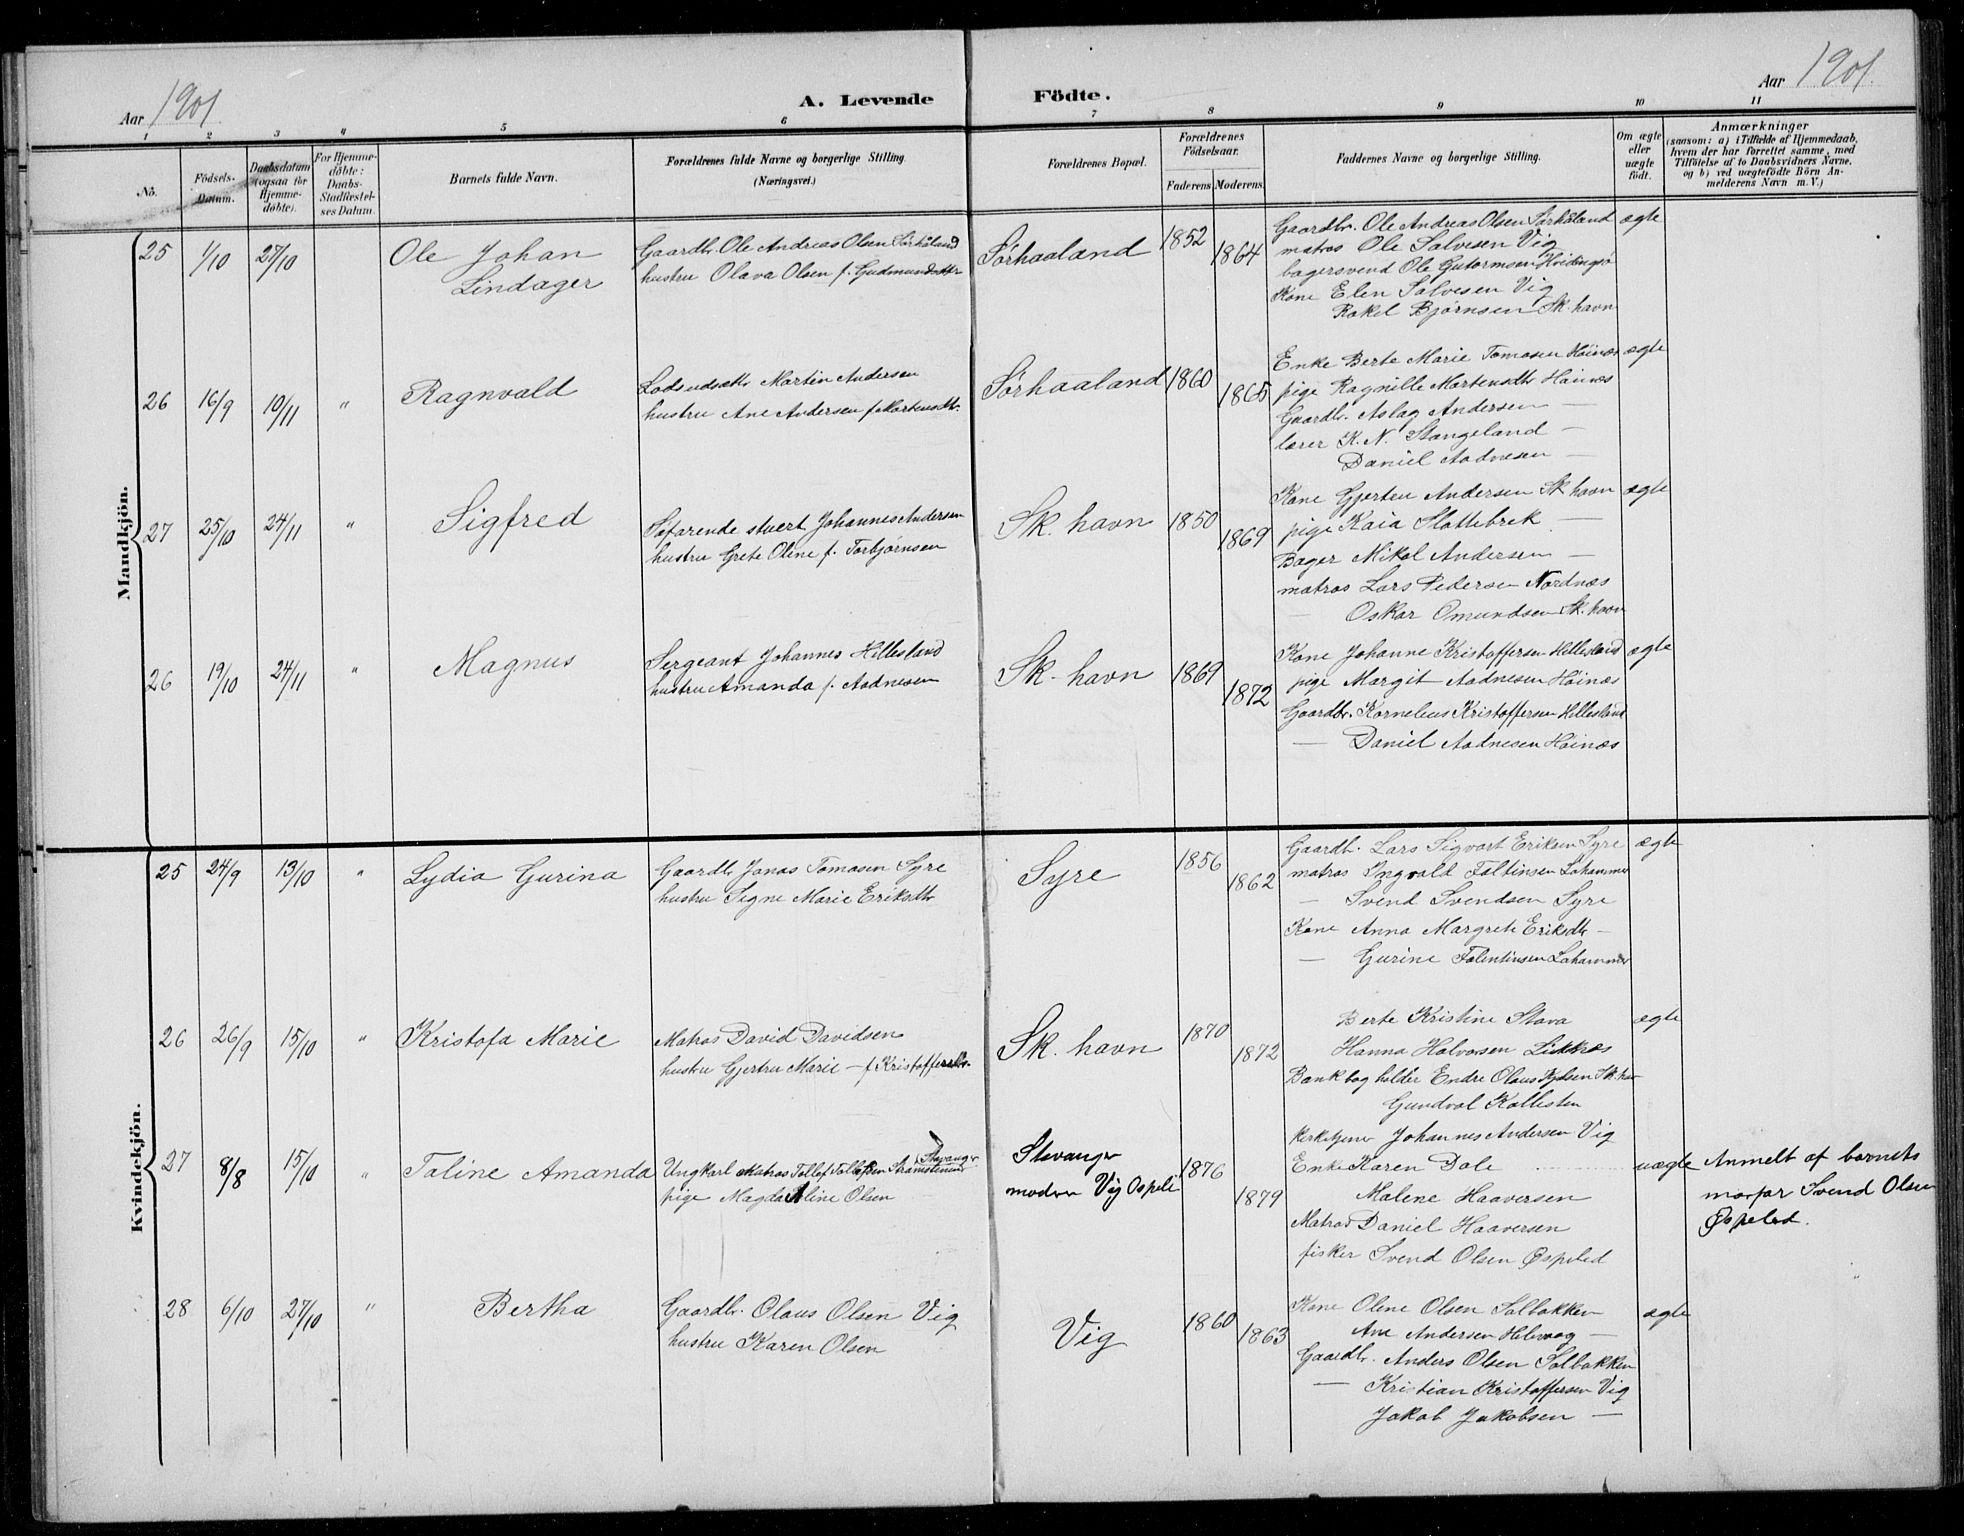 Aar 1901
A. Levende Födte.
Aar 1901.
1 2 3 4 5 6 7 8 9 10 11
No.
Födsels-Datum.
Daabsdatum (ogsaa for Hjemme-døbte).
For Hjemme-døbte: Daabs-Stadfæstel-ses Datum.
Barnets fulde Navn.
Forældrenes fulde Navne og borgerlige Stilling. (Næringsvei.)
Forældrenes Bopæl.
Forældrenes Födselsaar.
Faderens Moderens
Faddernes Navne og borgerlige Stilling.
Om ægte eller uægte født.
Anmærkninger
(saasom: a) i Tilfælde af Hjemmedaab,
hvem der har forrettet samme, med
Tilföielse af to Daabsvidners Navne,
og b) ved uægtefödte Börn An-
melderens Navn m. V.)
Mandkjön.
25 1/10 27/10 Ole Johan Lindager
Gaardbr. Ole Andreas Olsen Sørhåland
hustru Olava Olsen f. Gudmundsdtr
Sørhaaland 1852 1864
Gaardbr. Ole Andreas Olsen Sørhåland ægte
matros Ole Salvesen Vig
bagersvend Ole Gutormsen Hvidingsø
Kone Elen Salvesen Vig
Rakel Bjørnsen Sk. havn
26 16/9 10/11 " Ragnvald
Lodsudsættr Martin Andersen
hustru Ane Andersen f. Mortensdtr.
Sørhaaland 1860 1865
Enke Berte Marie Tomasen Høinæs ægte
pige Ragnille Mortensdtr Høinæs
Gaardbr. Aslag Andersen —
lærer K. N. Stangeland —
Daniel Aadnesen —
27 25/10 24/11 " Sigfred
Søfarende stuert Johannes Andersen
hustru Grete Oline f. Torbjørnsen
Sk. havn 1850 1869
Kone Gjerten Andersen Sk havn ægte
pige Kaia Slottebrek —
Bager Mikal Andersen —
matros Lars Pedersen Nordnæs
— Oskar Omundsen Sk. havn
26 19/10 24/11 " Magnus
Sergeant Johannes Hillesland
hustru Amanda f. Aadnesen
Sk. havn 1869 1872
Kone Johanne Kristoffersen Hillesland ægte
pige Margit Aadnesen Høinæs
Gaardbr. Kornelius Kristoffersen Hillesland
— Daniel Aadnesen Høinæs
Kvindekjön.
25 24/9 13/10 " Lydia Gurina
Gaardbr Jonas Tomasen Syre
hustru Signe Marie Eriksdtr
Syre 1856 1862
Gaardb. Lars Sigvart Eriksen Syre ægte
matros Ingvald Faltinsen Lahammer
— Svend Svendsen Syre
Kone Anna Margrete Eriksdtr —
— Gurine Falentinsen Lahammer
26 26/9 15/10 " Kristofa Marie
Matros David Davidsen
hustru Gjertru Marie — f. Kristoffersdtr.
Sk. havn 1870 1872
Berte Kristine Stava ægte
Hanna Halvorsen
Bankbogholder Endre Olaus Sk. hav
Gundval Kallesten
27 8/8 15/10 " Taline Amanda
Stavanger
Ungkarl Matros Tollef Tollefsen
pige Magda Aline Olsen
Stavanger
modren Vig Ospele
1876 1879
kirketjener Johannes Andersen Vig
Enke Karen Dale
Malene Haaversen
Matros Daniel Haaversen
fisker Svend Olsen Øspeled
uægte
Anmelt af barnets
morfar Svend Olsen
Øspeled.
28 6/10 27/10 " Bertha
Gaardbr. Olaus Olsen Vig
hustru Karen Olsen
Vig 1860 1863
Kone Olene Olsen Salbakken ægte
Ane Andersen Helevaag —
Gaardbr. Anders Olsen Salbakken
— Kristian Kristoffersen Vig
Jakob Jakobsen —